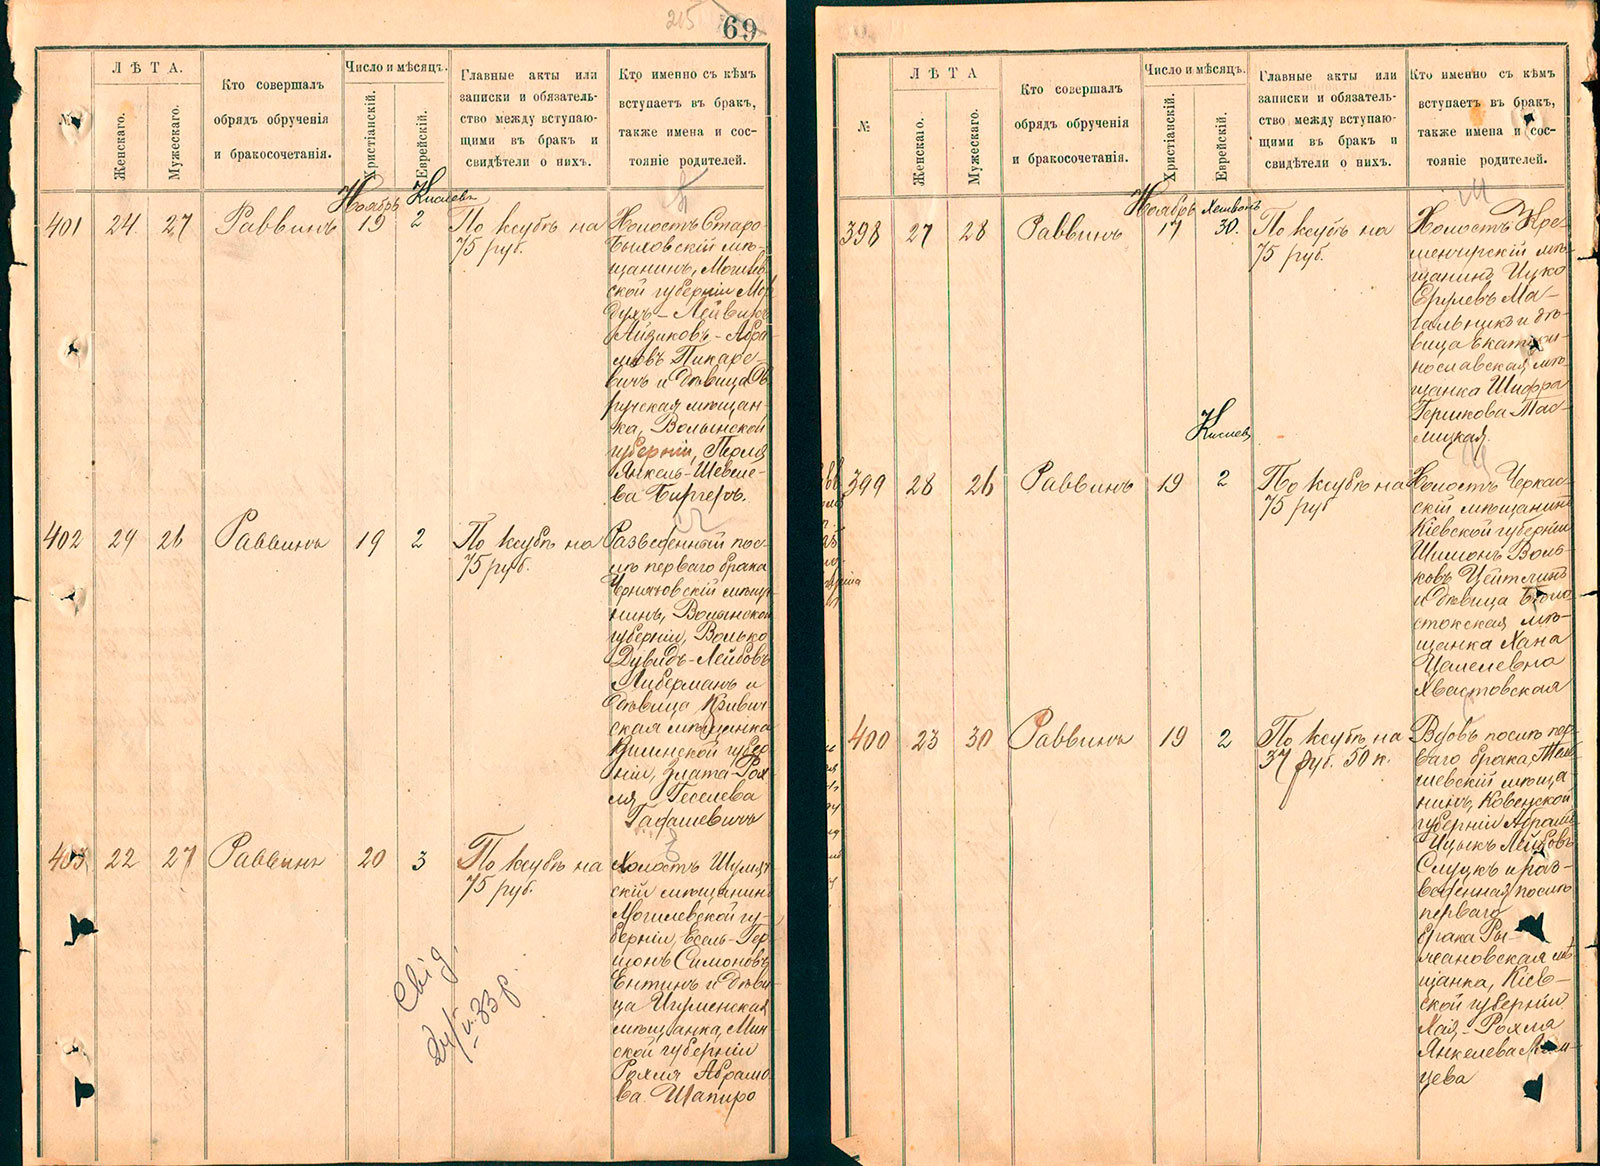 215
69
№
ЛѢТА.
Женскаго.
Мужескаго.
Кто совершалъ
обрядъ обрученія
и бракосочетанія.
Число и мѣсяцъ.
Христіанскій.
Еврейскій.
Главные акты или
записки и обязатель-
ство между вступаю-
щими въ бракъ и
свидѣтели о нихъ.
Кто именно съ кѣмъ
вступаетъ въ бракъ,
также имена и сос-
тояніе родителей.
Ноябрь Кислевъ
401 24 27 Раввинъ 19 2
По ксубѣ на
75 руб.
Холостъ Старо
быховскій мѣ-
щанинъ, Могилев
ской губерніи Мор
духъ-Лейвикъ
Айзиковъ-Абра-
мовъ Пикаре-
вичъ и дѣвица Ов
ручская мѣщан-
ка, Волынской
губерніи, Перля
Янкель-Шевеле-
ва Биргеръ.
402 24 26 Раввинъ 19 2
По ксубѣ на
75 руб.
Разведенный пос-
лѣ перваго брака
Черняховскій мѣща
нинъ, Волынской
губерніи, Волько
Дувидъ-Лейбовъ
Либерманъ и
дѣвица Кривич
ская мѣщанка
Виленской губер
ніи, Злата-Рох-
ля Геселева
Гафшевичъ
403 22 27 Раввинъ 20 3
По ксубѣ на
75 руб.
Холостъ Шумяч
скій мѣщанинъ
Могилевской гу-
берніи, Есель-Гер
шонъ Симоновъ
Ентинъ и дѣви
ца Игуменская
мѣщанка, Мин
ской губерніи
Рохля Абрамо
ва Шапиро
Свід.
33 р.
№
ЛѢТА
Женскаго.
Мужескаго.
Кто совершалъ
обрядъ обрученія
и бракосочетанія.
Число и мѣсяцъ.
Христіанскій.
Еврейскій.
Главные акты или
записки и обязатель-
ство между вступаю-
щими въ бракъ и
свидѣтели о нихъ.
Кто именно съ кѣмъ
вступаетъ въ бракъ,
также имена и сос-
тояніе родителей.
Ноябрь Хешвонъ
398 27 28 Раввинъ 17 30.
По ксубѣ на
75 руб.
Холостъ Кре-
менчугскій мѣ-
щанинъ Ицко
Сруловъ Ма-
гальникъ и дѣ-
вица Екатери-
нославская мѣ-
щанка Шифра
Гершкова Мас-
лицкая.
Кислев
399 28 26 Раввинъ 19 2
По ксубѣ на
75 руб
Холостъ Черкас-
скій мѣщанинъ
Кіевской губерніи
Шимонъ Воль-
ковъ Цейтлинъ
и дѣвица Бѣло
стокская мѣ-
щанка Хана
Цалелевна
Хвастовская
400 23 30 Раввинъ 19 2
По ксубѣ на
37 руб. 50 к.
Вдовъ послѣ пер
ваго брака, Тель
шевскій мѣща-
нинъ, Ковенской
губерніи Абрамъ
Ицыкъ Лейбовъ
Слуцкъ и раз-
веденная послѣ
перваго
брака Ры-
жановская мѣ
щанка, Кіев-
ской губерніи
Хая-Рохля
Янкелева
цева